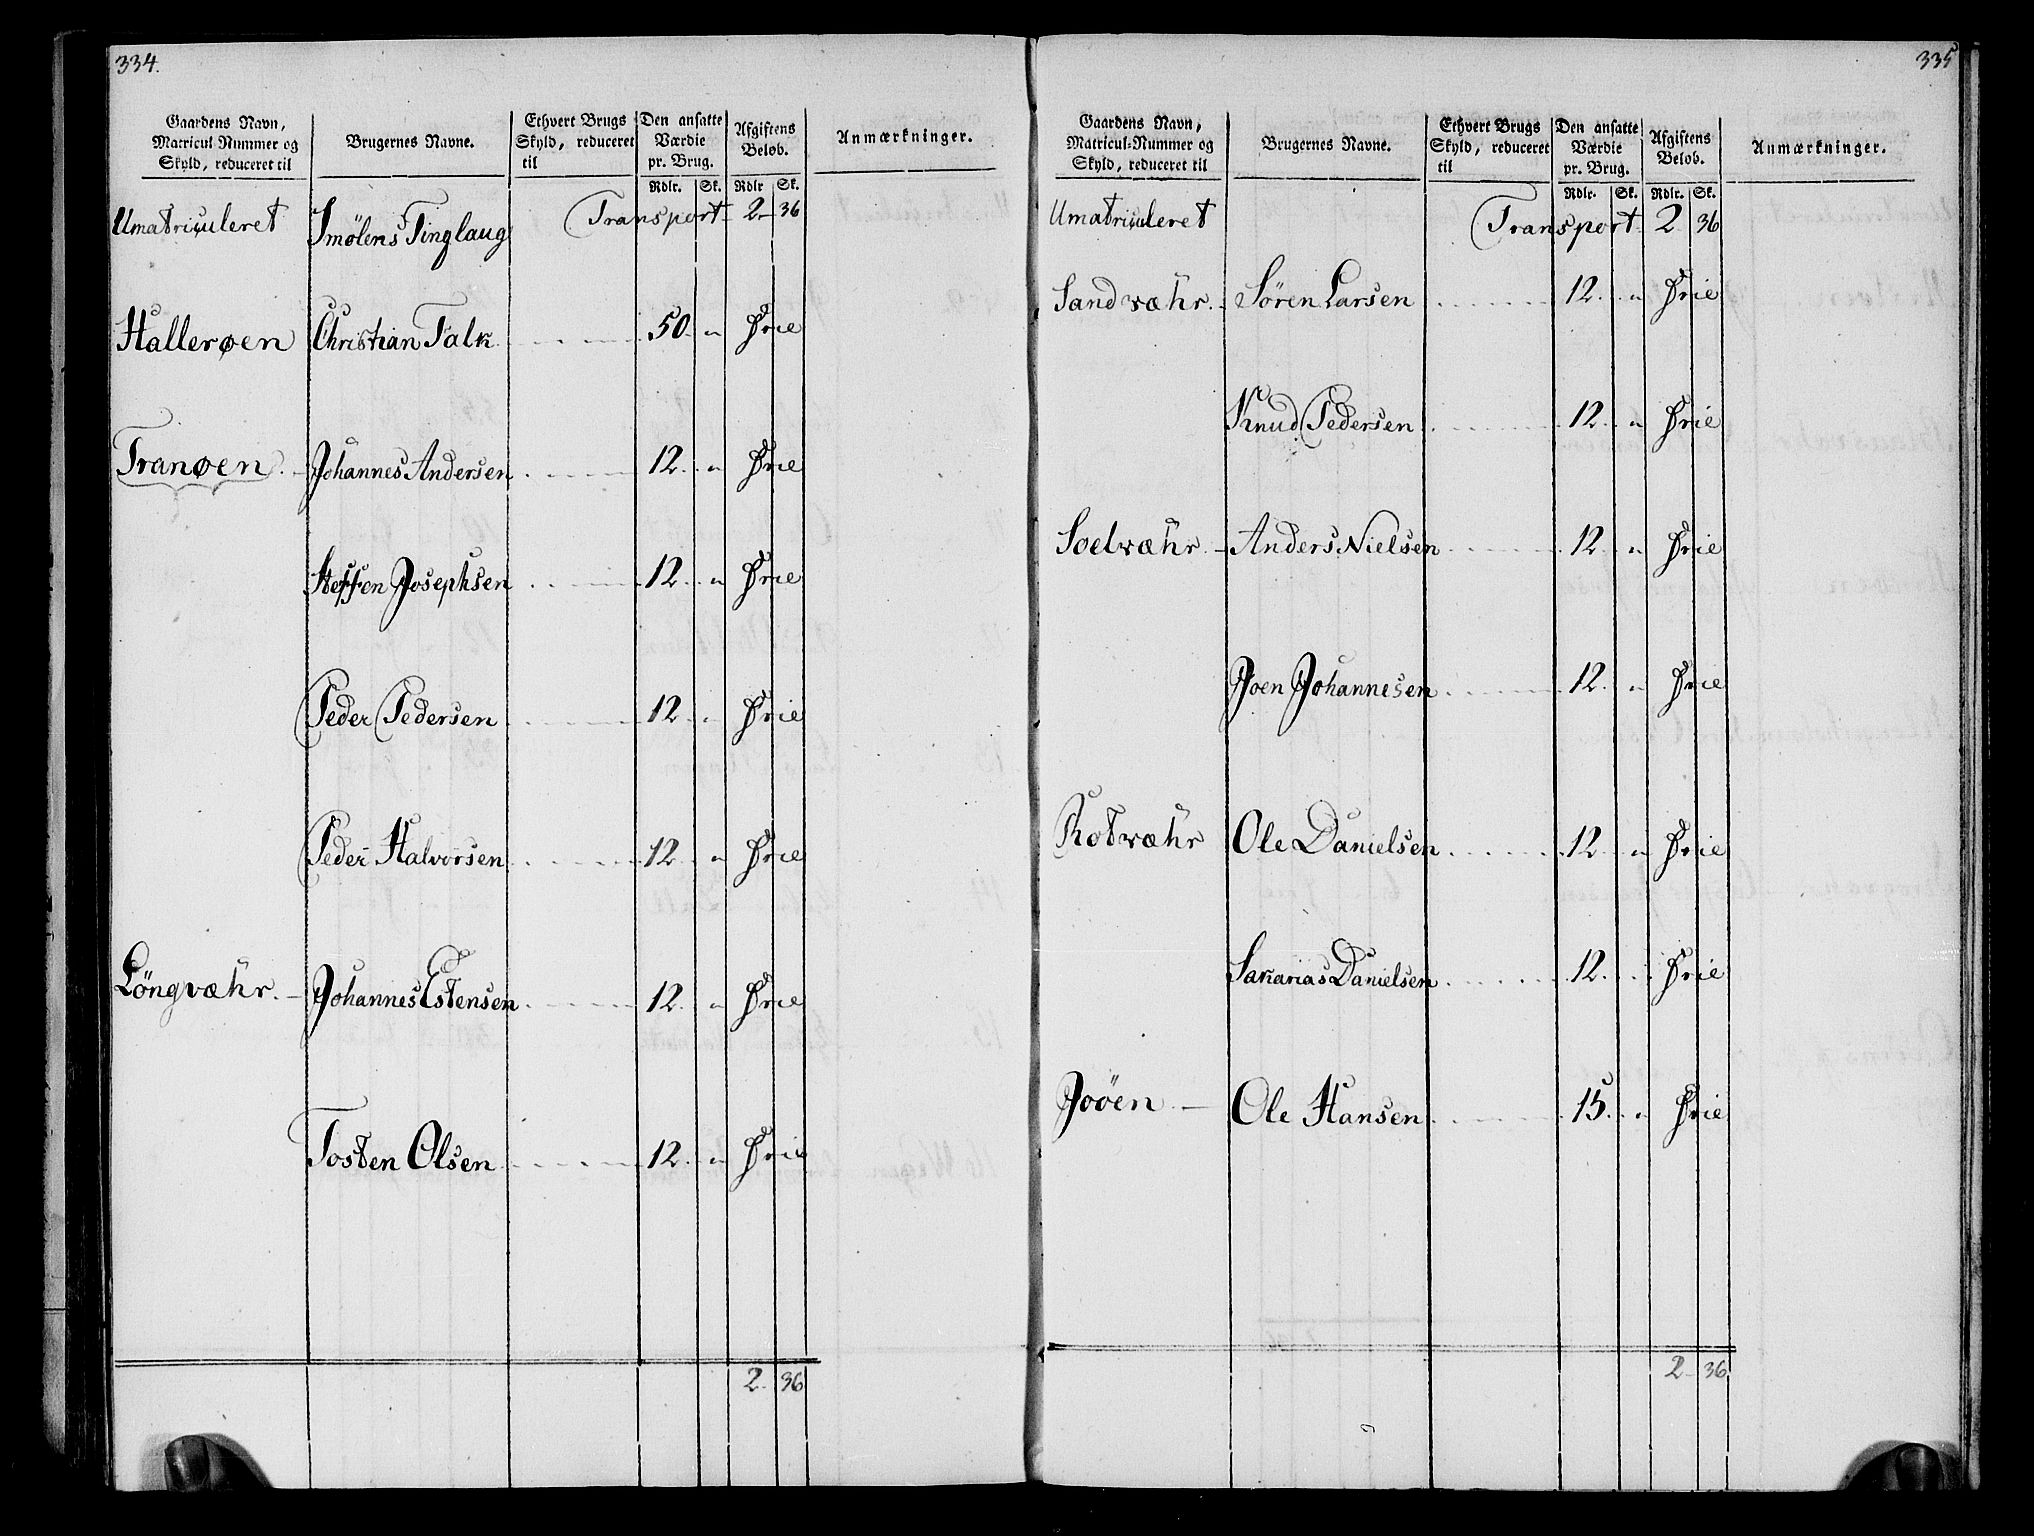 334.
Gaardens Navn, Matricul Nummer og Skyld, reduceret til | Brugernes Navne. | Ethvert Brugs Skyld, reduceret til | Den ansatte Værdie pr. Brug. Rdlr. Sk. | Afgiftens Beløb. Rdlr Sk. | Anmærkninger.
Umatriculeret Smølens Tinglaug Transport 2 36
Hallerøen Christian Falk 50 " Frie
Tranøen Johannes Andersen 12 " Frie
Steffen Josephsen 12 " Frie
Peder Pedersen 12 " Frie
Peder Halvorsen 12 " Frie
Löngvæhr. Johannes Estensen 12 " Frie
Tosten Olsen 12 " Frie
2 36
335
Gaardens Navn, Matricul-Nummer og Skyld, reduceret til | Brugernes Navne. | Ethvert Brugs Skyld, reduceret til | Den ansatte Værdie pr. Brug. Rdlr. Sk. | Afgiftens Beløb. Rdlr. Sk. | Anmærkninger.
Umatriculeret Transport 2 36
Sandvæhr. Sören Larsen 12. " Frie
Knud Pedersen 12. " Frie
Soelvæhr. Anders Nielsen 12 " Frie
Joen Johannesen 12. " Frie
Rotvæhr Ole Danielsen 12 " Frie
Sakarias Danielsen 12. Frie
Joöen Ole Hansen 15. " Frie
2 36